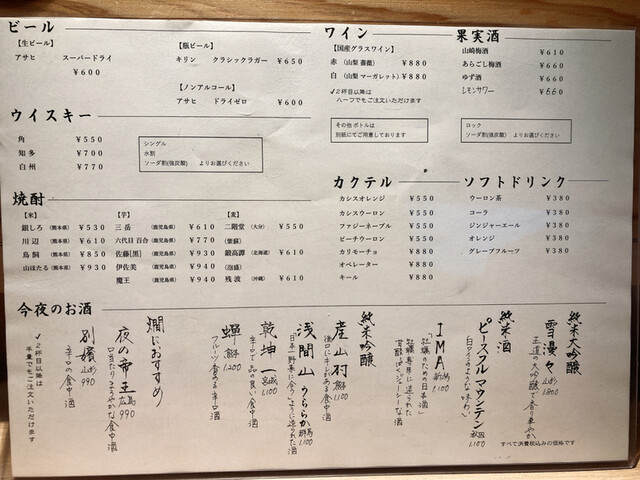 ビール
【生ビール】
アサヒ スーパードライ
¥600
【瓶ビール】
キリン クラシックラガー ¥650
【ノンアルコール】
アサヒ ドライゼロ ¥600
ワイン
【国産グラスワイン】
赤 (山梨 薔薇) ¥880
白 (山梨 マーガレット) ¥880
✓2杯目以降は
ハーフでもご注文いただけます
その他 ボトルは
別紙にてご用意しております
果実酒
山崎梅酒 ¥610
あらごし梅酒 ¥660
ゆず酒 ¥660
レモンサワー ¥660
ロック
ソーダ割(強炭酸) よりお選びください
ウイスキー
角 ¥550
知多 ¥700
白州 ¥770
シングル
水割
ソーダ割(強炭酸) よりお選びください
焼酎
【米】
銀しろ (熊本県) ¥530
川辺 (熊本県) ¥610
鳥飼 (熊本県) ¥850
山ほたる (熊本県) ¥930
【芋】
三岳 (鹿児島県) ¥610
六代目 百合 (鹿児島県) ¥770
佐藤[黒] (鹿児島県) ¥930
伊佐美 (鹿児島県) ¥940
魔王 (鹿児島県) ¥940
【麦】
二階堂 (大分) ¥550
(紫蘇)
鍛高譚 (北海道) ¥610
(泡盛)
残波 (沖縄) ¥610
カクテル
カシスオレンジ ¥550
カシスウーロン ¥550
ファジーネーブル ¥550
ピーチウーロン ¥550
カリモーチョ ¥880
オペレーター ¥880
キール ¥880
ソフトドリンク
ウーロン茶 ¥380
コーラ ¥380
ジンジャーエール ¥380
オレンジ ¥380
グレープフルーツ ¥380
今夜のお酒
純米大吟醸
雪漫々 山形 1,800
王道の大吟醸で香り華やか
純米酒
ピースフル マウンテン 秋田 1,100
白ワインのような味わい
IMA 新潟 1,100
「牡蠣のための日本酒」
牡蠣専用に造られた
甘酸っぱくジューシーな酒
純米吟醸
産山村 1,100
後口にキレがある食中酒
浅間山 うららか 群馬 1,100
日本の野菜に合うように造られた酒
乾坤一 宮城 1,100
辛口で品の良い食中酒
蝉 1,200
フルーツ香のある辛口酒
燗におすすめ
夜の帝王 広島 990
口当たりまろやかな食中酒
別嬪 山形 990
辛口の食中酒
✓2杯目以降は
半量でもご注文いただけます
すべて消費税込みの価格です